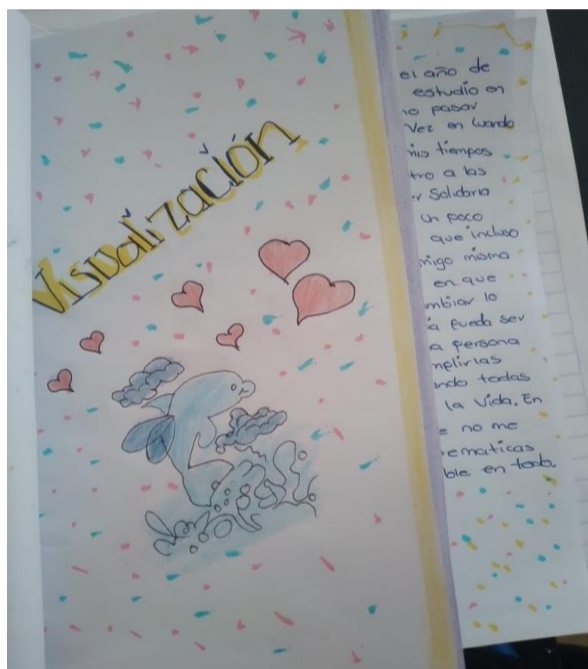 Visualización
el año de
estudio en
no pasar
Vez en cuando
mis tiempos
tro a las
er Solidaria
un poco
que incluso
migo misma
en que
mbiar lo
ia pueda ser
a persona
mplirlas
ndo todas
la Vida. En
e no me
tematicas
ble en todo.